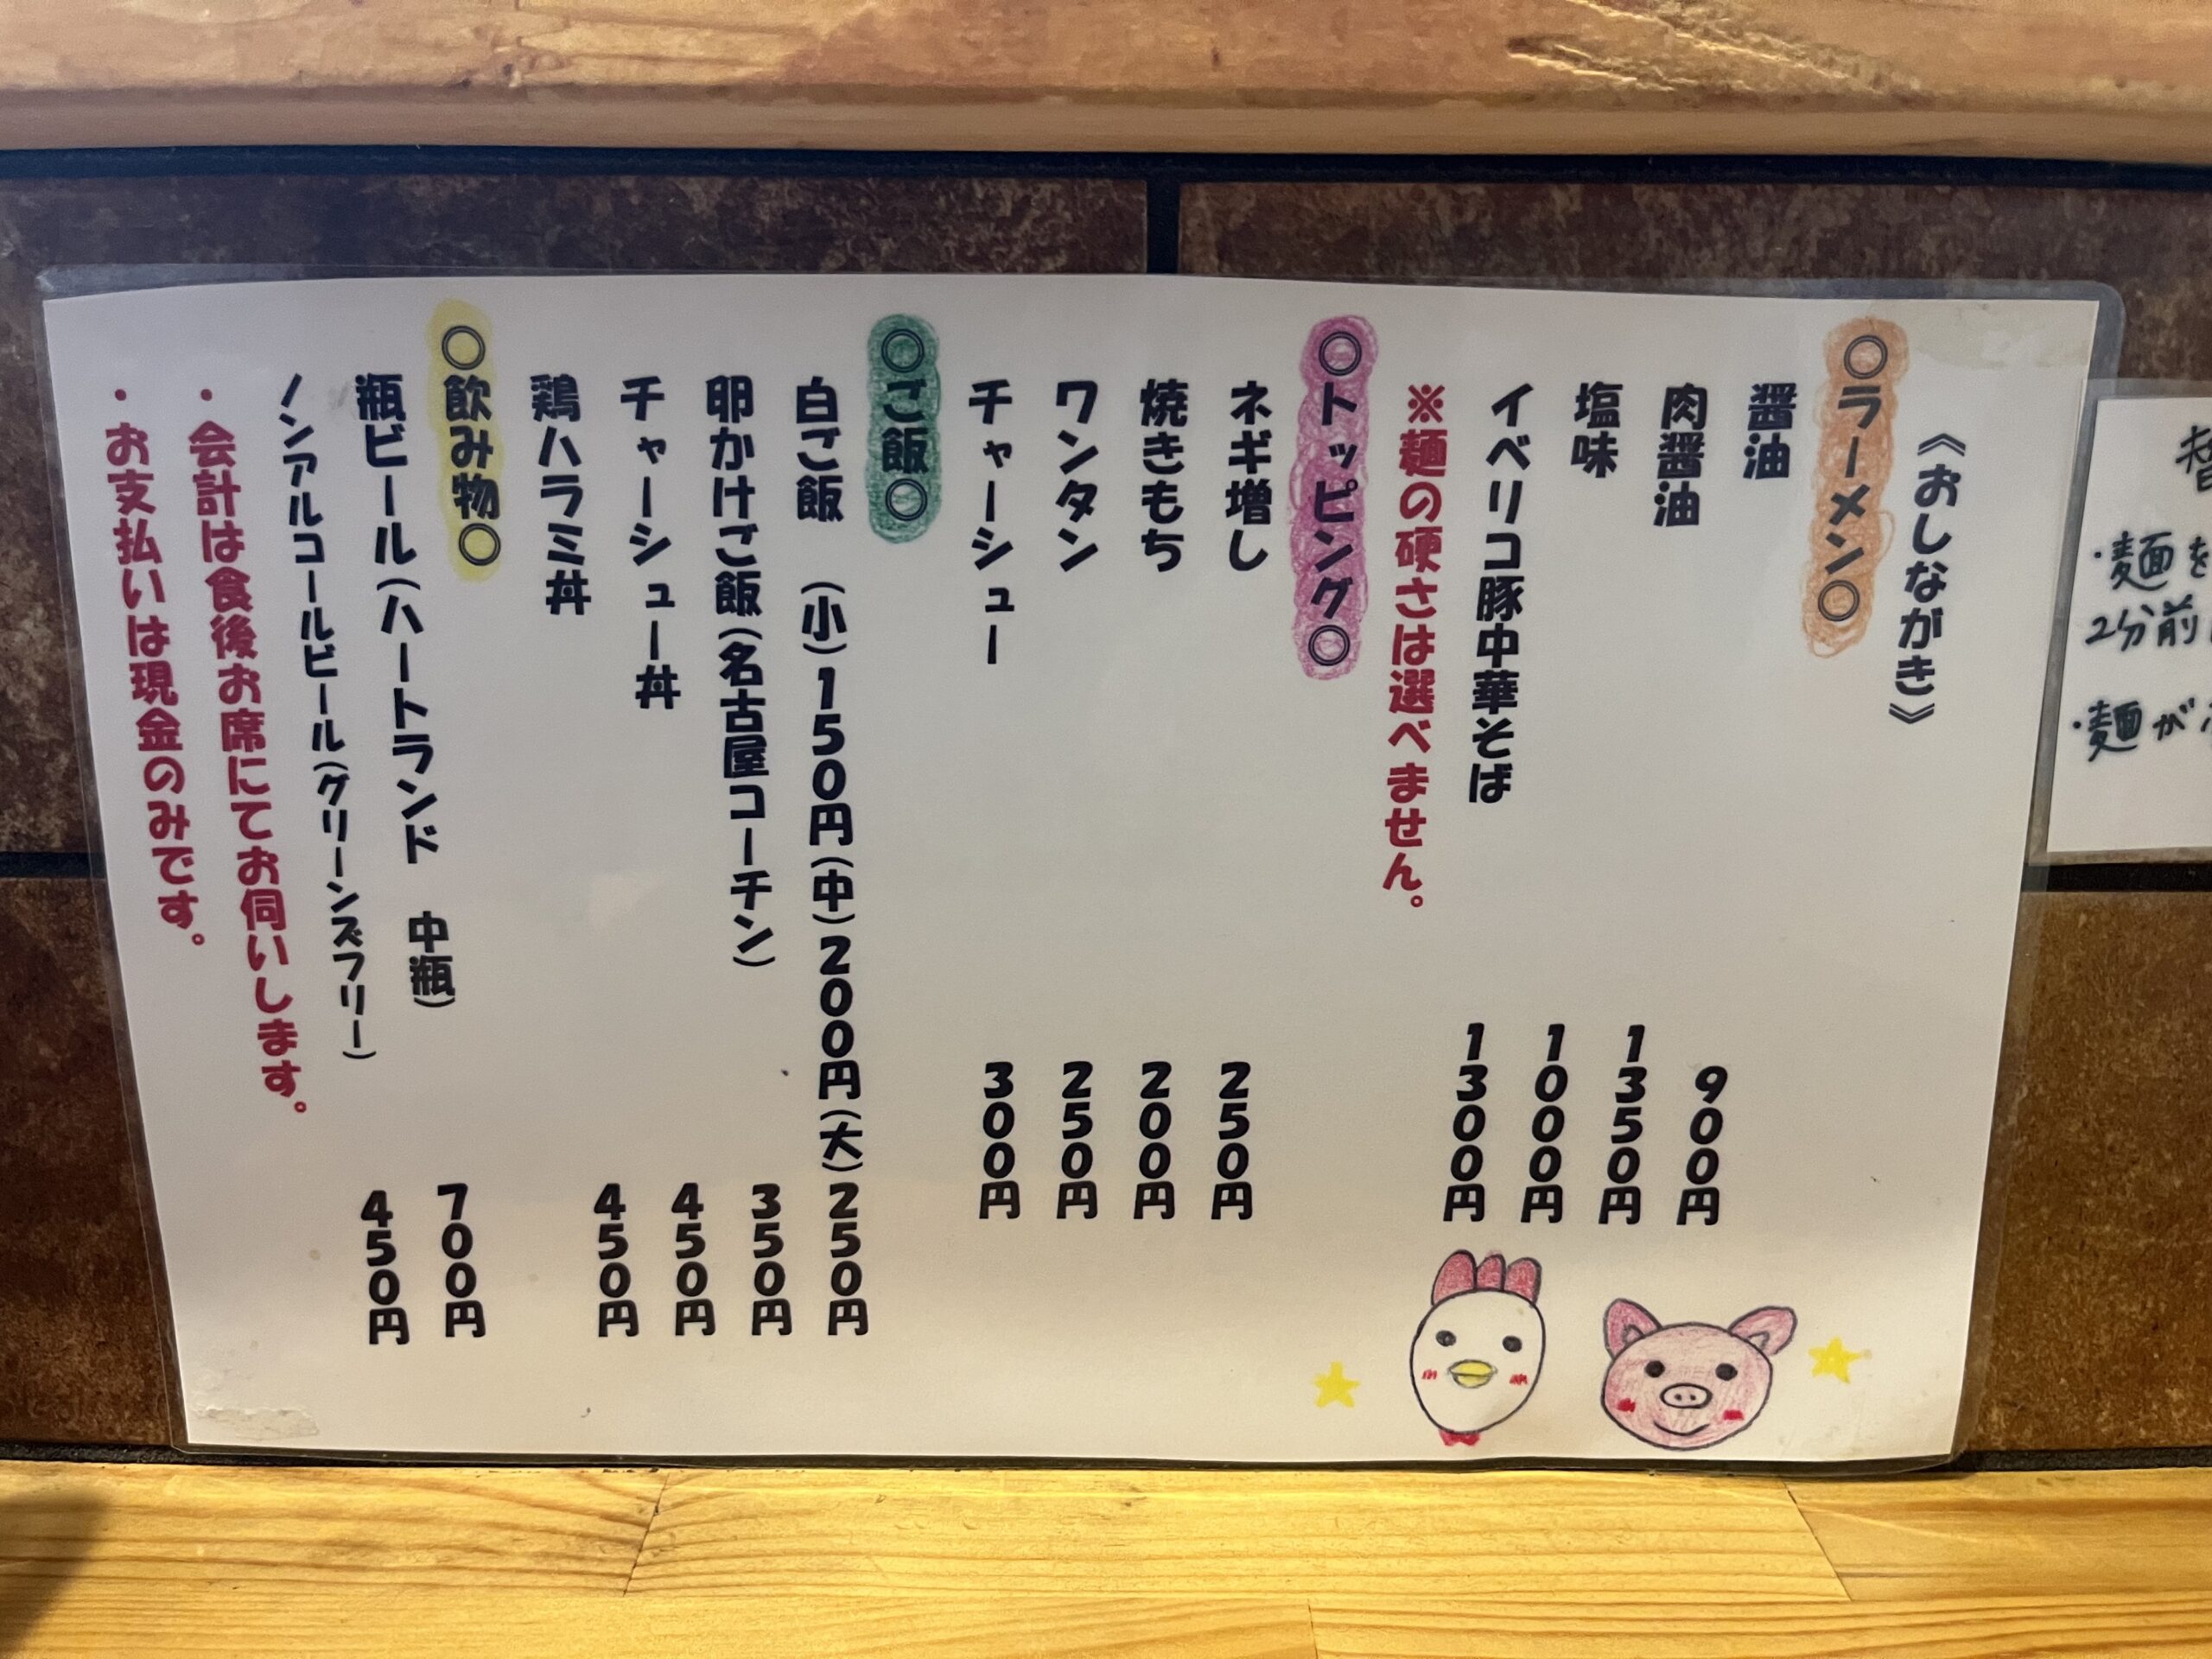 替
・麺を
2分前
・麺が
《おしながき》
○ラーメン○
醤油 900円
肉醤油 1350円
塩味 1000円
イベリコ豚中華そば 1300円
※麺の硬さは選べません。
○トッピング○
ネギ増し 250円
焼きもち 200円
ワンタン 250円
チャーシュー 300円
○ご飯○
白ご飯 (小)150円(中)200円(大)250円
卵かけご飯(名古屋コーチン) 350円
チャーシュー丼 450円
鶏ハラミ丼 450円
○飲み物○
瓶ビール(ハートランド 中瓶) 700円
ノンアルコールビール(グリーンズフリー) 450円
・会計は食後お席にてお伺いします。
・お支払いは現金のみです。